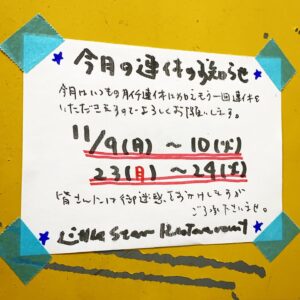 今月の連休のお知らせ
今月はいつもの月化連休に加えもう一回連休を
いただきますのでよろしくお願いします。
11/9(月) ～ 10(火)
23(月) ～ 24(火)
皆さんには御迷惑をおかけしますが
ご了承下さいませ。
Little Star Restaurant